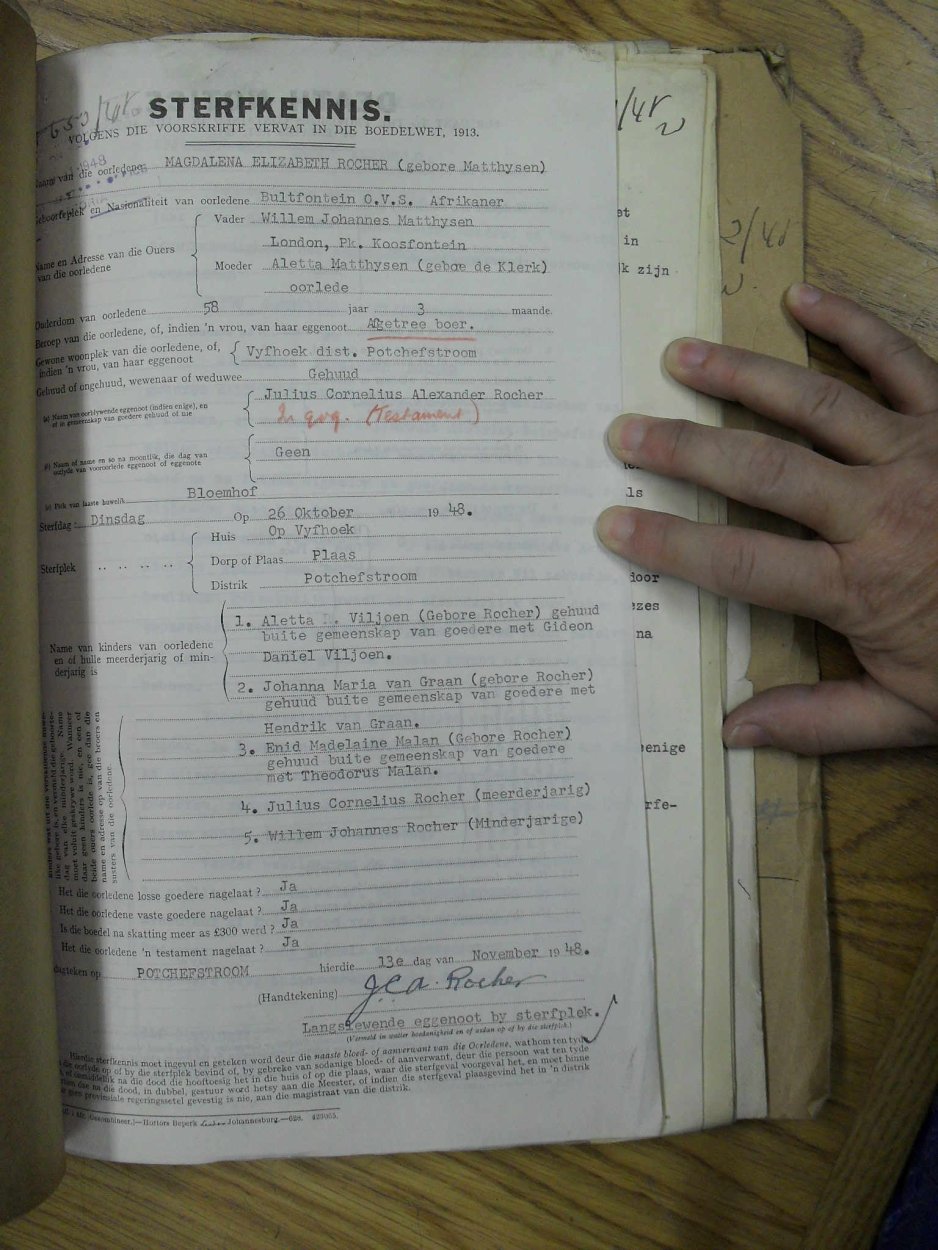 STERFKENNIS.
VOLGENS DIE VOORSKRIFTE VERVAT IN DIE BOEDELWET, 1913.
Naam van die oorledene MAGDALENA ELIZABETH ROCHER (gebore Matthysen)
Geboorteplek en Nasionaliteit van oorledene Bultfontein O.V.S. Afrikaner
Name en Adresse van die Ouers van die oorledene
Vader Willem Johannes Matthysen
London, Pk. Koosfontein
Moeder Aletta Matthysen (gebore de Klerk)
oorlede
Ouderdom van oorledene 58 jaar 3 maande
Beroep van die oorledene, of, indien 'n vrou, van haar eggenoot Afgetree boer.
Gewone woonplek van die oorledene, of, indien 'n vrou, van haar eggenoot Vyfhoek dist. Potchefstroom
Gehuud of ongehuud, wewenaar of weduwee Gehuud
(a) Naam van oorblywende eggenoot (indien enige), en of in gemeenskap van goedere gehuud of nie
Julius Cornelius Alexander Rocher
In gvg. (Testament)
(b) Naam of name en so na moontlik, die dag van oorlyde van vooroorlede eggenoot of eggenote
Geen
(c) Plek van laaste huwelik Bloemhof
Sterfdag: Dinsdag Op 26 Oktober 1948.
Sterfplek
Huis Op Vyfhoek
Dorp of Plaas Plaas
Distrik Potchefstroom
Name van kinders van oorledene
en of hulle meerderjarig of min-
derjarig is
1. Aletta Viljoen (Gebore Rocher) gehuud
buite gemeenskap van goedere met Gideon
Daniel Viljoen.
2. Johanna Maria van Graan (gebore Rocher)
gehuud buite gemeenskap van goedere met
Hendrik van Graan.
3. Enid Madelaine Malan (Gebore Rocher)
gehuud buite gemeenskap van goedere
met Theodorus Malan.
4. Julius Cornelius Rocher (meerderjarig)
5. Willem Johannes Rocher (Minderjarige)
Het die oorledene losse goedere nagelaat? Ja
Het die oorledene vaste goedere nagelaat? Ja
Is die boedel na skatting meer as £300 werd? Ja
Het die oorledene 'n testament nagelaat? Ja
POTCHEFSTROOM hierdie 13e dag van November 1948.
(Handtekening) J.C.A. Rocher
Langslewende eggenoot by sterfplek.
(Vermeld in watter hoedanigheid en of aldan op of by die sterfplek.)
Hierdie sterfkennis moet ingevul en geteken word deur die naaste bloed- of aanverwant van die Oorledene, wat hom ten tyde
op of by die sterfplek bevind of, by gebreke van sodanige bloed- of aanverwant, deur die persoon wat ten tyde
na die dood die hooftoesig het in die huis of op die plaas, waar die sterfgeval voorgeval het, en moet binne
na die dood, in dubbel, gestuur word hetsy aan die Meester, of indien die sterfgeval plaasgevind het in 'n distrik
geen provinsiale regeringsetel gevestig is nie, aan die magistraat van die distrik.
Hortors Beperk Johannesburg.—628. 423055.
/48
et
in
k zijn
2/48
ls
door
ezes
na
enige
rfe-